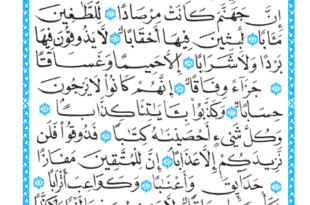 إِنَّ جَهَنَّمَ كَانَتْ مِرْصَادًا ۝ لِّلطَّٰغِينَ
مَـَٔابًا ۝ لَّٰبِثِينَ فِيهَآ أَحْقَابًا ۝ لَّا يَذُوقُونَ فِيهَا
بَرْدًا وَلَا شَرَابًا ۝ إِلَّا حَمِيمًا وَغَسَّاقًا
۝ جَزَآءً وِفَاقًا ۝ إِنَّهُمْ كَانُوا۟ لَا يَرْجُونَ
حِسَابًا ۝ وَكَذَّبُوا۟ بِـَٔايَٰتِنَا كِذَّابًا ۝
وَكُلَّ شَىْءٍ أَحْصَيْنَٰهُ كِتَٰبًا ۝ فَذُوقُوا۟ فَلَن
نَّزِيدَكُمْ إِلَّا عَذَابًا ۝ إِنَّ لِلْمُتَّقِينَ مَفَازًا
۝ حَدَآئِقَ وَأَعْنَٰبًا ۝ وَكَوَاعِبَ أَتْرَابًا ۝